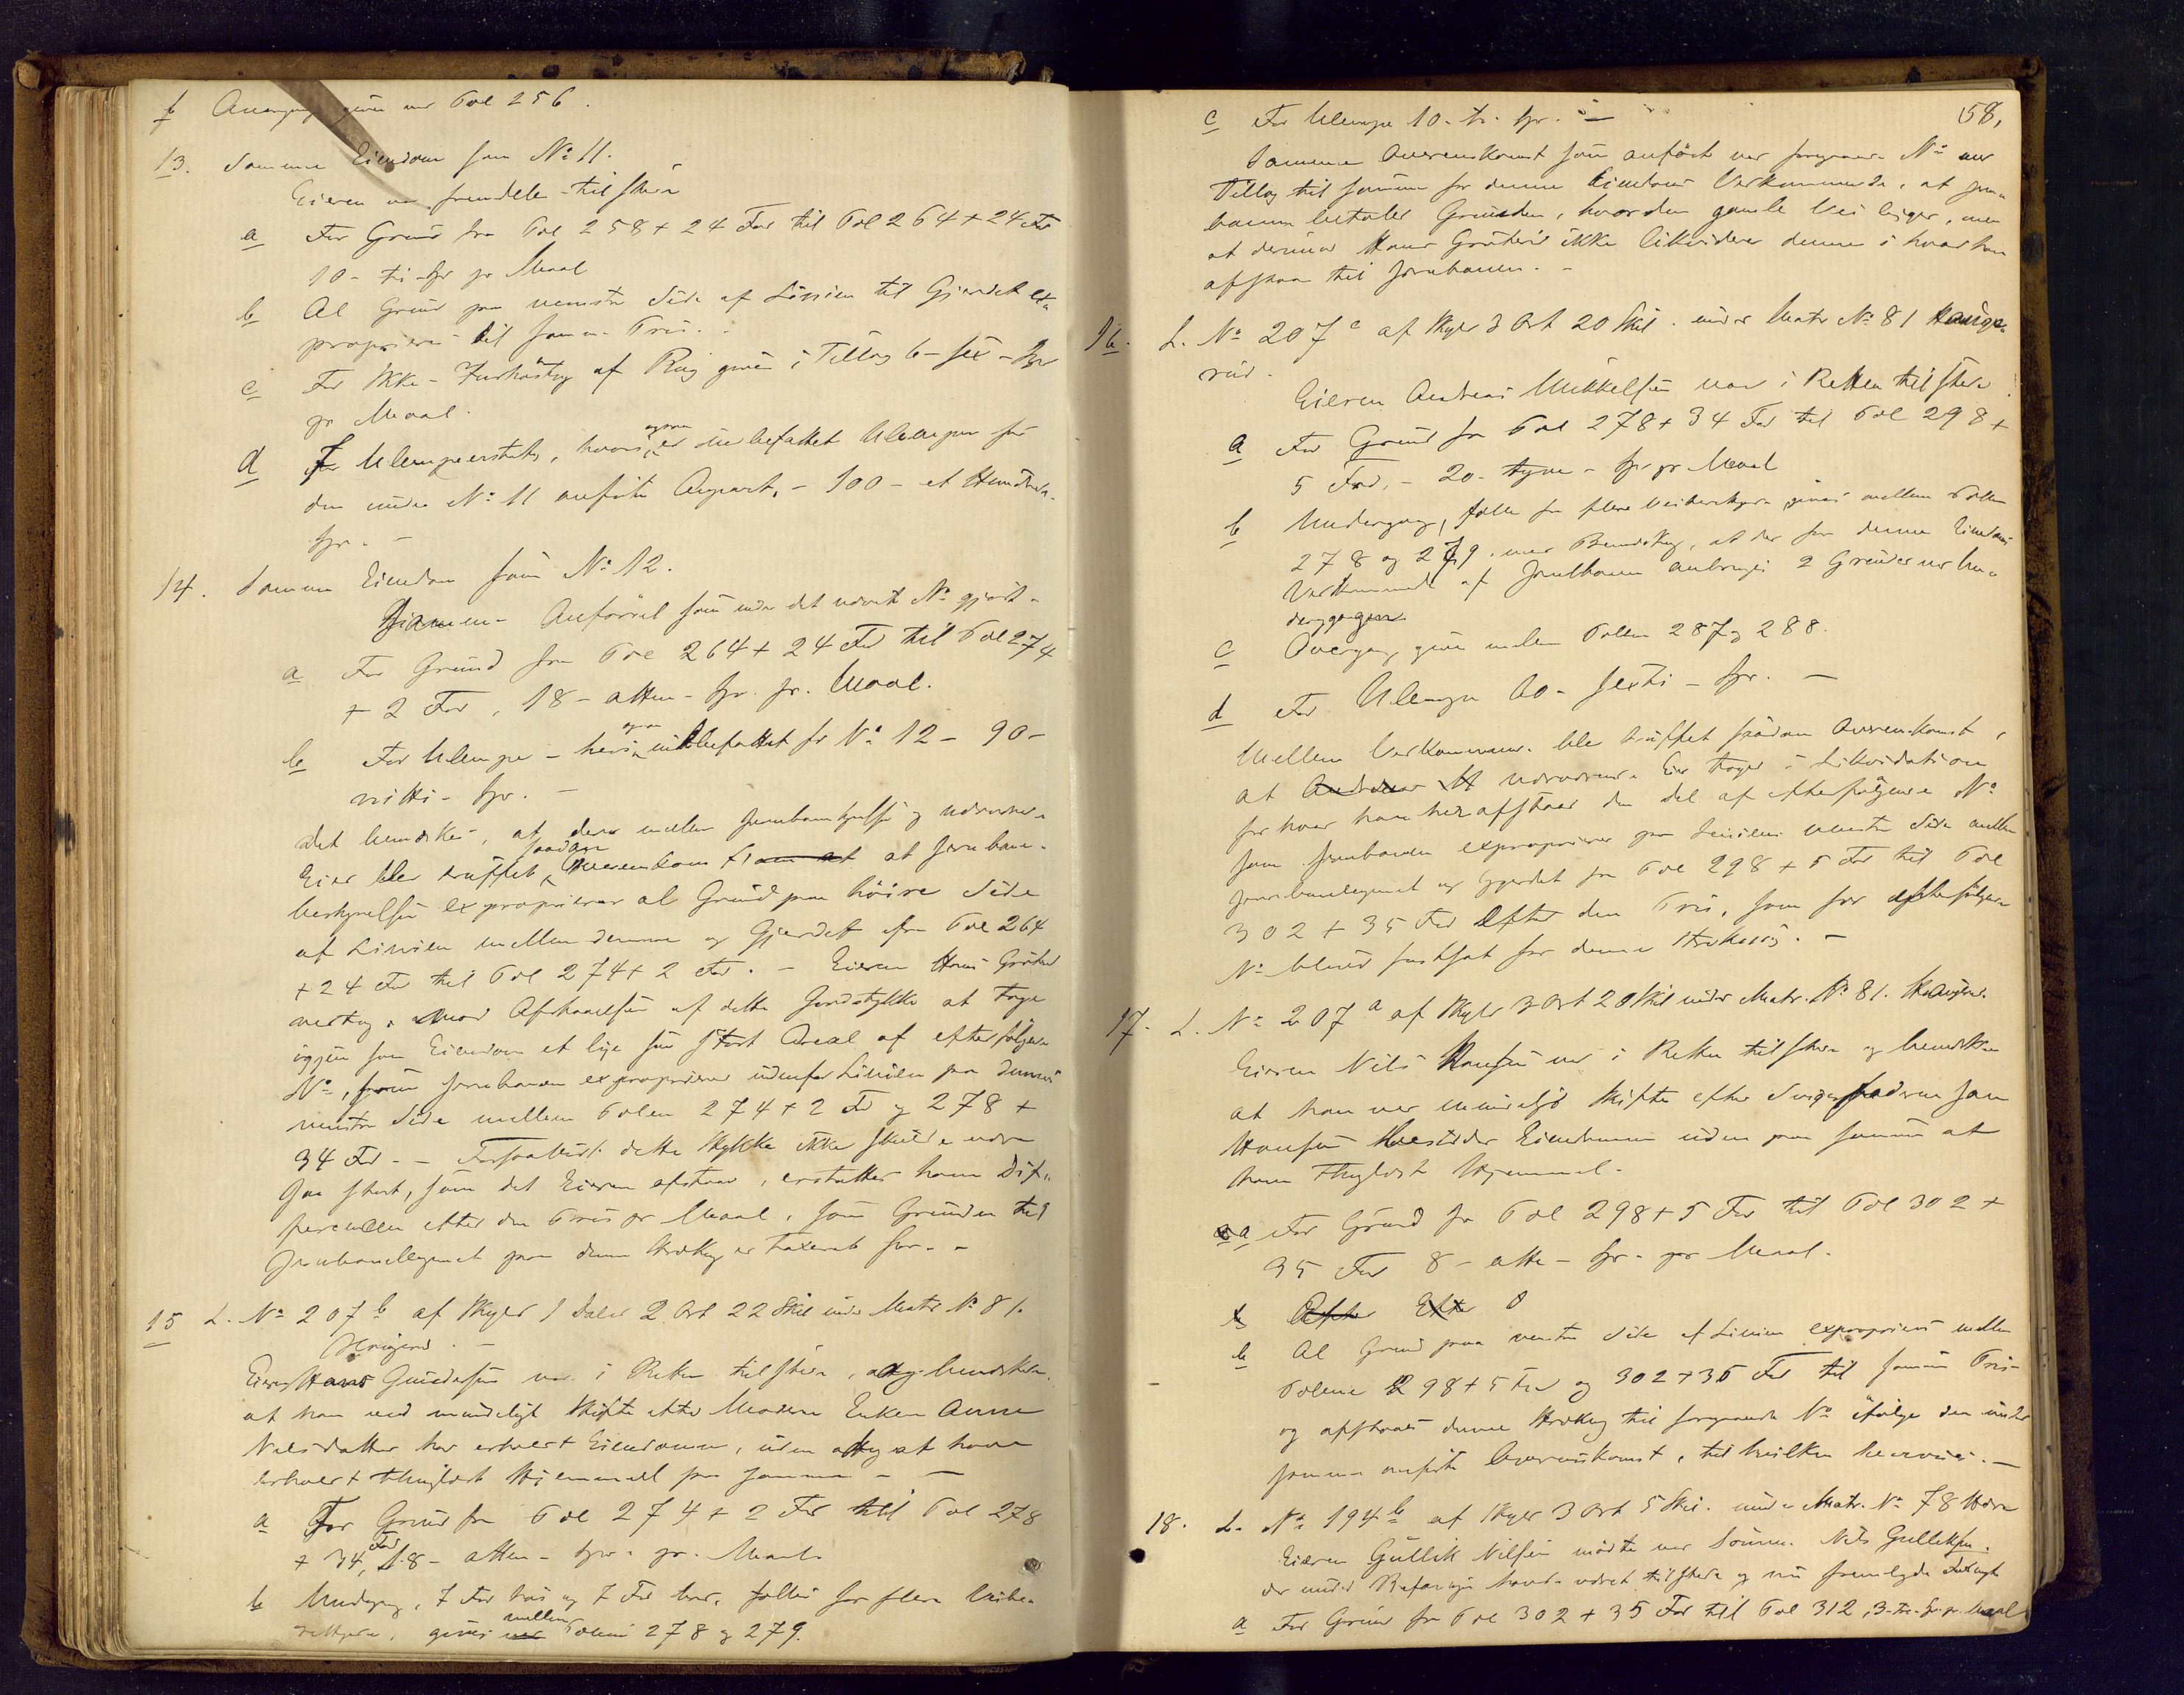 f Overgang gives ved Pæl 256.
13. Samme Eiendom som No 11.
Eieren var fremdeles tilstede
a For Grund fra Pæl 258 + 24 Fod til Pæl 264 + 24 Fod
10 - ti - Spr pr Maal
b Al Grund paa venstre Side af Linien til Gjerdet ex-
proprieres til samme Pris.
c For Ikke-Indhøstng af Rug gives i Tillæg 6 - sex - Spr
pr Maal.
d For Ulempeerstatng, hvori ogsaa er indbefattet Ulempen for
den under No 11 anførte Oppart, - 100 - et Hundrede
Spr. -
14. Samme Eiendom som No 12.
Samme Anførsel som under det nævnte No gjort.
a For Grund fra Pæl 264 + 24 Fod til Pæl 274
+ 2 Fod, 18 - atten - Spr. pr. Maal.
b For Ulempe - heri ogsaa indbefattet for No 12 - 90 -
nitti - Spr. -
Det bemærkes, at der mellem Jernbanestyrelsen og nærværende
Eier blev truffet saadan Overenskomst om at at Jernbane-
bestyrelsen exproprierer al Grund paa høire Side
af Linien mellem denne og Gjerdet fra Pæl 264
+ 24 Fod til Pæl 274 + 2 Fod. - Eieren Hans
mod Afstaaelsen af dette Jordstykke at tage
igjen som Eiendom et lige saa stort Areal af efterfølgende
No, som Jernbanen exproprierer udenfor Linien paa dennes
venstre Side mellem Pælen 274 + 2 Fod og 278 +
34 Fod. - Forsaavidt dette Stykke ikke skulde være
saa stort, som det Eieren afstaar, erstattes ham Dif-
ferencen efter den Pris pr Maal, som Grunden til
Jernbanelegemet paa denne Strækng er taxeret for. -
15 L. No 207 b af Skyld 1 Daler 2 Ort 22 Skil under Matr No 81
Haugerud. -
Eieren Hans Gundersen var i Retten tilstede, og bemærkede
at han ved mindeligt Skifte efter Moderen Enken Anne
Nilsdatter har erhvervet Eiendommen, uden at have
erhvervet thinglæst Hjemmel paa samme - -
a For Grund fra Pæl 274 + 2 Fod til Pæl 278
+ 34 Fod, 18 - atten - Spr. pr. Maal.
b Undergang, 7 Fod bred og 7 Fod høi, fælles for flere Veibe-
rettigede, gives ved mellem Pælene 278 og 279.
58,
c For Ulempe 10 - ti - Spr. -
Samme Overenskomst som anført ved foregaaende No med
Tillæg til samme for denne Eiendoms Vedkommende, at Jern-
banen betaler Grunden, hvor den gamle Vei ligger, men
at derimod Hans ikke likviderer denne i hvad han
afstaar til Jernbanen. -
16. L. No 207 c af Skyld 3 Ort 20 Skil. under Matr No 81 Hauge-
rud.
Eieren Andreas Mikkelsen var i Retten tilstede
a For Grund fra Pæl 278 + 34 Fod til Pæl 298 +
5 Fod, - 20 - tyve - Spr. pr Maal
b Undergang, fælles for flere Veiberettigede, gives mellem Pælene
278 og 279, med Bemærkng, at der for denne Eiendoms
Vedkommende af Jernbanen anbringes 2 Grinder ved Un-
dergangen.
c Overgang gives mellem Pælene 287 og 288.
d For Ulempe 60 - sexti - Spr. -
Mellem Vedkommende blev truffet saadan Overenskomst,
at Andreas M nærværende Eier tager i Likvidation
for hvad han her afstaar den Del af efterfølgende No
som Jernbanen exproprierer paa Liniens venstre Side mellem
Jernbanelegemet og Gjerdet fra Pæl 298 + 5 Fod til Pæl
302 + 35 Fod efter den Pris, som for efterfølgende
No bliver fastsat for denne Strækning. -
17. L. No 207 a af Skyld 3 Ort 20 Skil under Matr. No 81. Haugerud.
Eieren Nils Hansen var i Retten tilstede og bemærkede
at han ved mindeligt Skifte efter Svigerfaderen Jon
Hansen besidder Eiendommen uden paa samme at
have thinglæst Hjemmel.
a For Grund fra Pæl 298 + 5 Fod til Pæl 302 +
35 Fod 8 - otte - Spr. pr Maal.
b Efter
b Al Grund paa venstre Side af Linien exproprieres mellem
Pælene 298 + 5 Fod og 302 + 35 Fod til samme Pris
og afstaaes denne Strækng til foregaaende No ifølge den under
samme anførte Overenskomst, til hvilken henvises. -
18. L. No 194 b af Skyld 3 Ort 5 Skil. under Matr. No 78
Eieren Gullik Nilsen mødte ved Sønnen Nils Gulliksen,
der under Befaringen havde været tilstede og nu fremlagde
a For Grund fra Pæl 302 + 35 Fod til Pæl 312, 3 - tre - Spr pr Maal